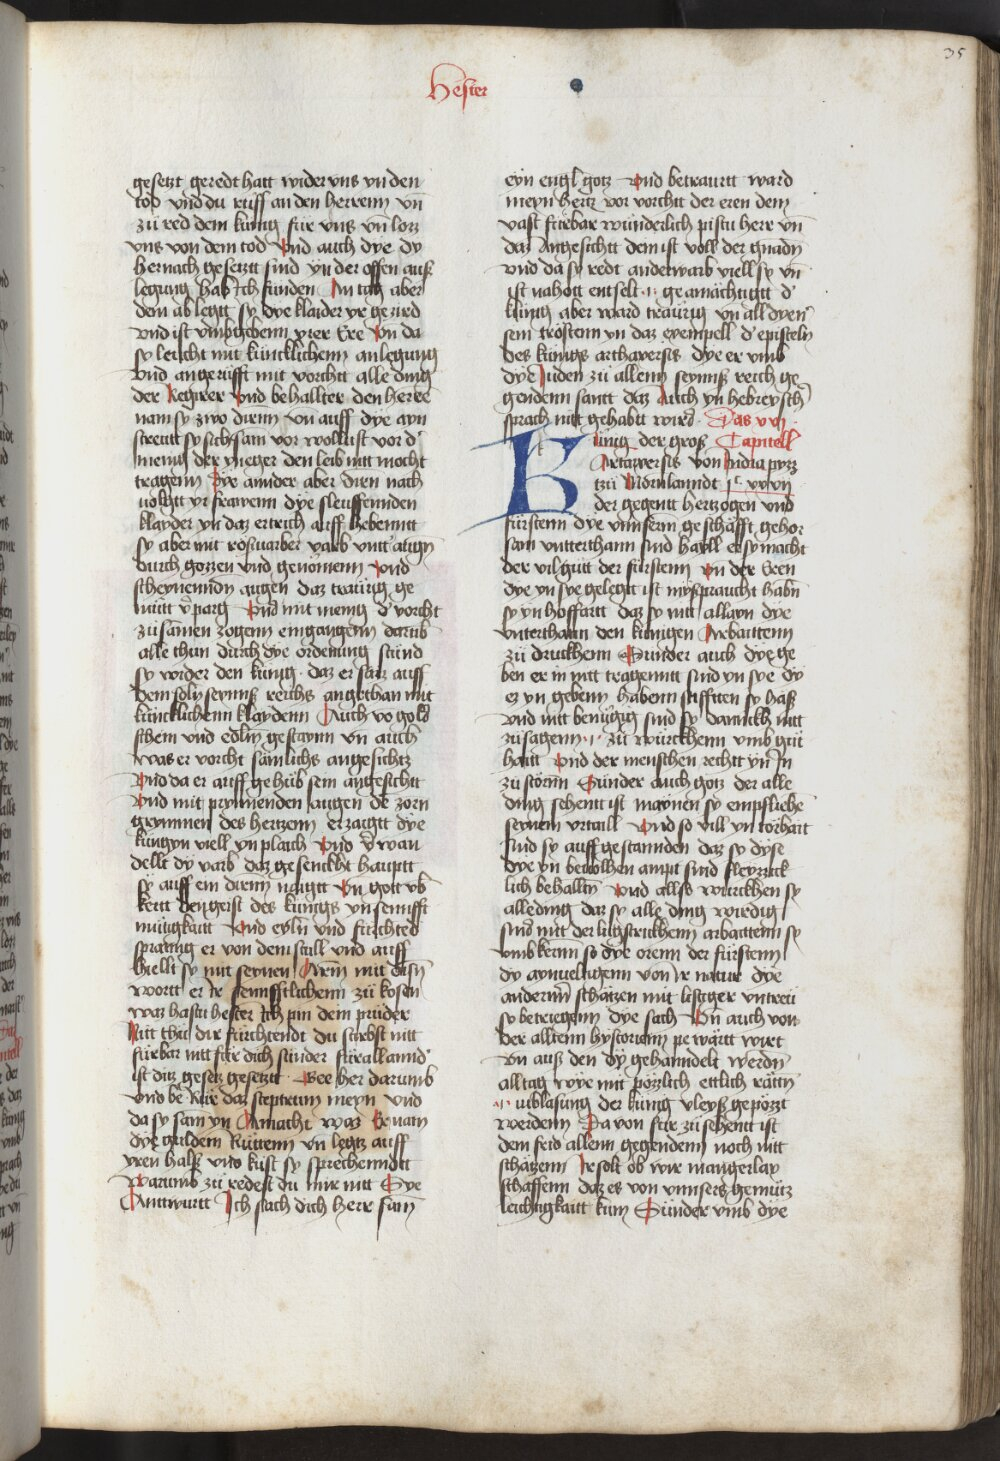 35
Hester
gesetzt geredt hatt wider vns vn den
tod vnd du ruff an den herrenn vn
zü red dem künig für vns vn losz
vns von dem tod Vnd auch dye dy
hernach gesetzt sind yn der offen ausz
legung hab Ich funden An tag aber
dem ab legtt sy dye klaider yr gezird
vnd ist vmbgebenn yrer Ere Vn da
sy leucht mit künicklichenn anlegung
vnd angerüfft mit vorchtt alle ding
der Regirer vnd behallter den herre
nam sy zwo dirnn von auff dye ayn
streütt sy sich sam vor wollust vor d
menig der yneger den leib nitt mocht
tragenn Dye annder aber dien nach
uolgtt yr frawenn dye fleussennden
klayder yn daz ertrich auff hebenntt
sy aber mit rosuarber varb vntt augn
durch gozzen vnd genomenn vnd
scheynenndn augen daz traurig ge
mütt v̈parg Vnd mit menig d vorcht
züsamen zogenn eingangenn darüb
alle thun durch dye ordenung stünd
sy wider den künig daz er sasz auff
dem soly seynnsz reichs angethan mit
künicklichenn klaydenn Auch vo gold
schein vnd edlm gestaynn vn auch
was er vorcht sämlichs angesichtz
Vnd da er auff gehüb sein angesichtt
Vnd mit prynnenden augen de zorn
grymmen des hertzenn erzaigtt dye
küngyn viell vn plaich vnd v̈wan
dellt dy varb daz gesenckht hauptt
sy auff ein dirnn naigtt Vn gott vb
kertt den geist des künigs vn sennfft
mütigkaitt Vnd eyln vnd furchted
sprang er von dem stull vnd auff
hielt sy mit seynen Armn mit disn
wortt er ir sennfftlichenn zü kosen
waz hastu hester Ich pin dein prüder
Nitt thü dir fürchtendt du stirbst nitt
fürbar nitt für dich sünder für all annd
ist ditz gesetz gesetztt See her darumb
vnd be Rür daz sceptrum meyn vnd
da sy sam yn Amacht waz Er nam
dye guldein Ruttenn vn legtz auff
yren halsz vnd kust sy sprechenndtt
Warumb zü redest du mir nitt Sye
Anttwurtt Ich sach dich herr sam
eyn engl gotz Vnd betraurtt ward
meyn hertz vor vorchtt der eren dein
vast fürbar wünderlich pistu herr vn
daz Angesichtt dein ist voll der gnadn
vnd da sy redt anderwarb viell sy vn
ist nahott entselt geamächtigtt d
künig aber ward traurig vn all dyen
sein trostenn yn daz exempell d episteln
des künigs arthaxersis dye er vmb
dye Juden zü allenn seynnsz reich ge
gendenn santt daz Auch yn hebreysch
sprach nitt gehabtt wirt Das xvj
Capitell
Künig der grosz
Artaxersis von India pysz
tzü Mornlanndt jc xxvij
der gegentt hertzogen vnd
fürstenn dye vnnserm geschäfft gehor
sam vntterthann sind hayll er sy macht
der vil gütt der fürstenn vn der Eren
dye yn sye gelegtt ist mysprauchtt habn
sy yn hoffartt daz sy nitt allayn dye
vnterthann den künigen Arbaittenn
zü druckhenn Sünder auch dye ge
ben er in nitt tragenntt sind yn sye dy
es yn gebenn habenn stifften sy hasz
vnd nitt benügig sind sy danckh nitt
zü sagenn zü würckhenn vmb gut
haitt Vnd der menschen rechtt yn In
zü störnn Sünder auch gotz der alle
ding sehentt ist maynen sy empfliehe
seynem vrtaill Vnd so vill yn torhait
sind sy auff gestannden daz sy dyse
dye yn beuolhen ampt sind fleyzzick
lich behallten Vnd allso würckhen sy
alleding daz sy alle ding wirdig
sind mit der lugstrickhenn arbaittenn sy
vmbkernn so dye orenn der fürstenn
dy aynueltigenn von ir natur dye
andernn schätzen mit listiger vntreü
sy betriegenn dye sach Vn auch von
der alltenn hystorienn pe wärtt wirt
vn ausz den dy gehanndelt werdn
alltag wye mit pözlich ettlich rättn
inblasung der künig vleysz gepözzt
werdenn Da von für zü sehentt ist
dem frid allenn gegendenn noch nitt
schätzenn Jr solt ob wir mangerlay
schaffenn daz es von vnnsers gemütz
leichtigkaitt kum Sünder vmb dye